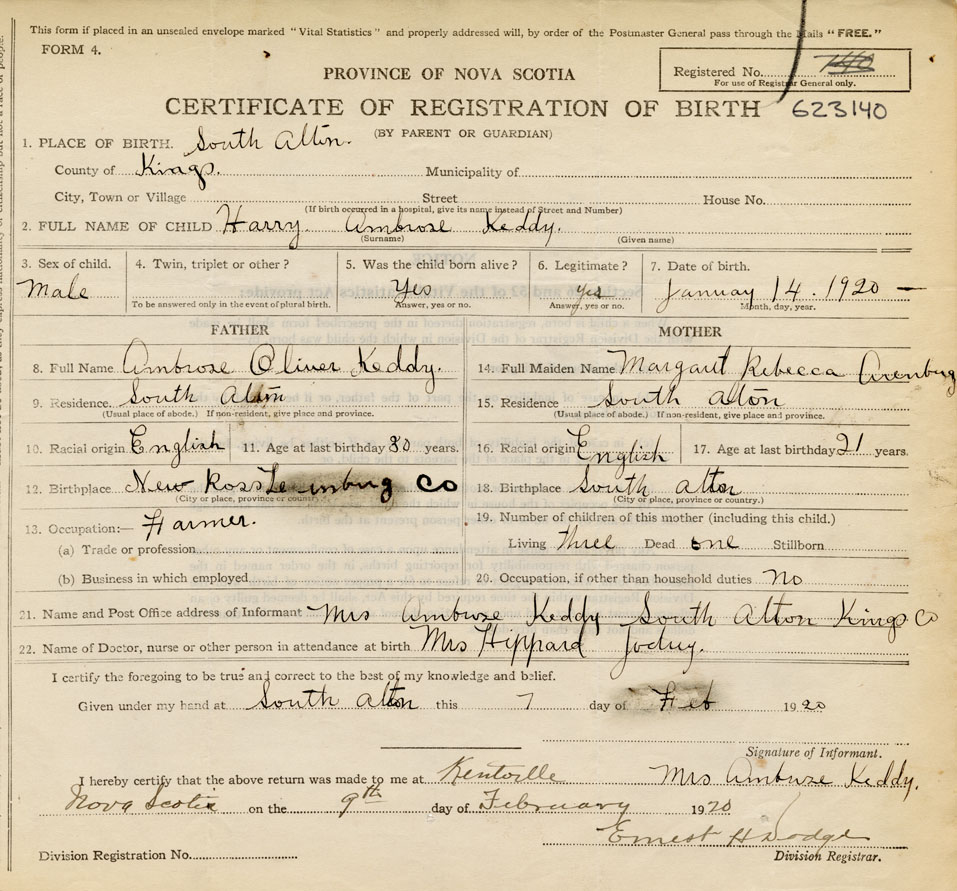 This form if placed in an unsealed envelope marked "Vital Statistics" and properly addressed will, by order of the Postmaster General pass through the Mails "FREE."
FORM 4.
PROVINCE OF NOVA SCOTIA
Registered No.
For use of Registrar General only.
CERTIFICATE OF REGISTRATION OF BIRTH 623140
(BY PARENT OR GUARDIAN)
1. PLACE OF BIRTH. South Alton.
County of Kings. Municipality of
City, Town or Village Street House No.
(If birth occurred in a hospital, give its name instead of Street and Number)
2. FULL NAME OF CHILD Harry Ambrose Keddy.
(Surname) (Given name)
3. Sex of child. 4. Twin, triplet or other? 5. Was the child born alive? 6. Legitimate? 7. Date of birth.
Male Yes yes January 14. 1920 —
To be answered only in the event of plural birth. Answer, yes or no. Answer, yes or no. Month, day, year.
FATHER MOTHER
8. Full Name Ambrose Oliver Keddy. 14. Full Maiden Name Margaret Rebecca Arenburg
9. Residence. South Alton 15. Residence South Alton
(Usual place of abode.) If non-resident, give place and province. (Usual place of abode.) If non-resident, give place and province.
10. Racial origin English 11. Age at last birthday 30 years. 16. Racial origin English 17. Age at last birthday 21 years.
12. Birthplace New Ross Lunenburg Co 18. Birthplace South Alton
(City or place, province or country.) (City or place, province or country.)
13. Occupation:— Farmer. 19. Number of children of this mother (including this child.)
(a) Trade or profession Living three Dead one Stillborn
(b) Business in which employed 20. Occupation, if other than household duties No
21. Name and Post Office address of Informant Mrs Ambrose Keddy South Alton Kings Co
22. Name of Doctor, nurse or other person in attendance at birth Mrs Hippard
I certify the foregoing to be true and correct to the best of my knowledge and belief.
Given under my hand at South Alton this 7 day of Feb 1920
Signature of Informant.
I hereby certify that the above return was made to me at Kentville Mrs Ambrose Keddy.
Nova Scotia on the 9th day of February 1920
Ernest H Dodge
Division Registration No. Division Registrar.